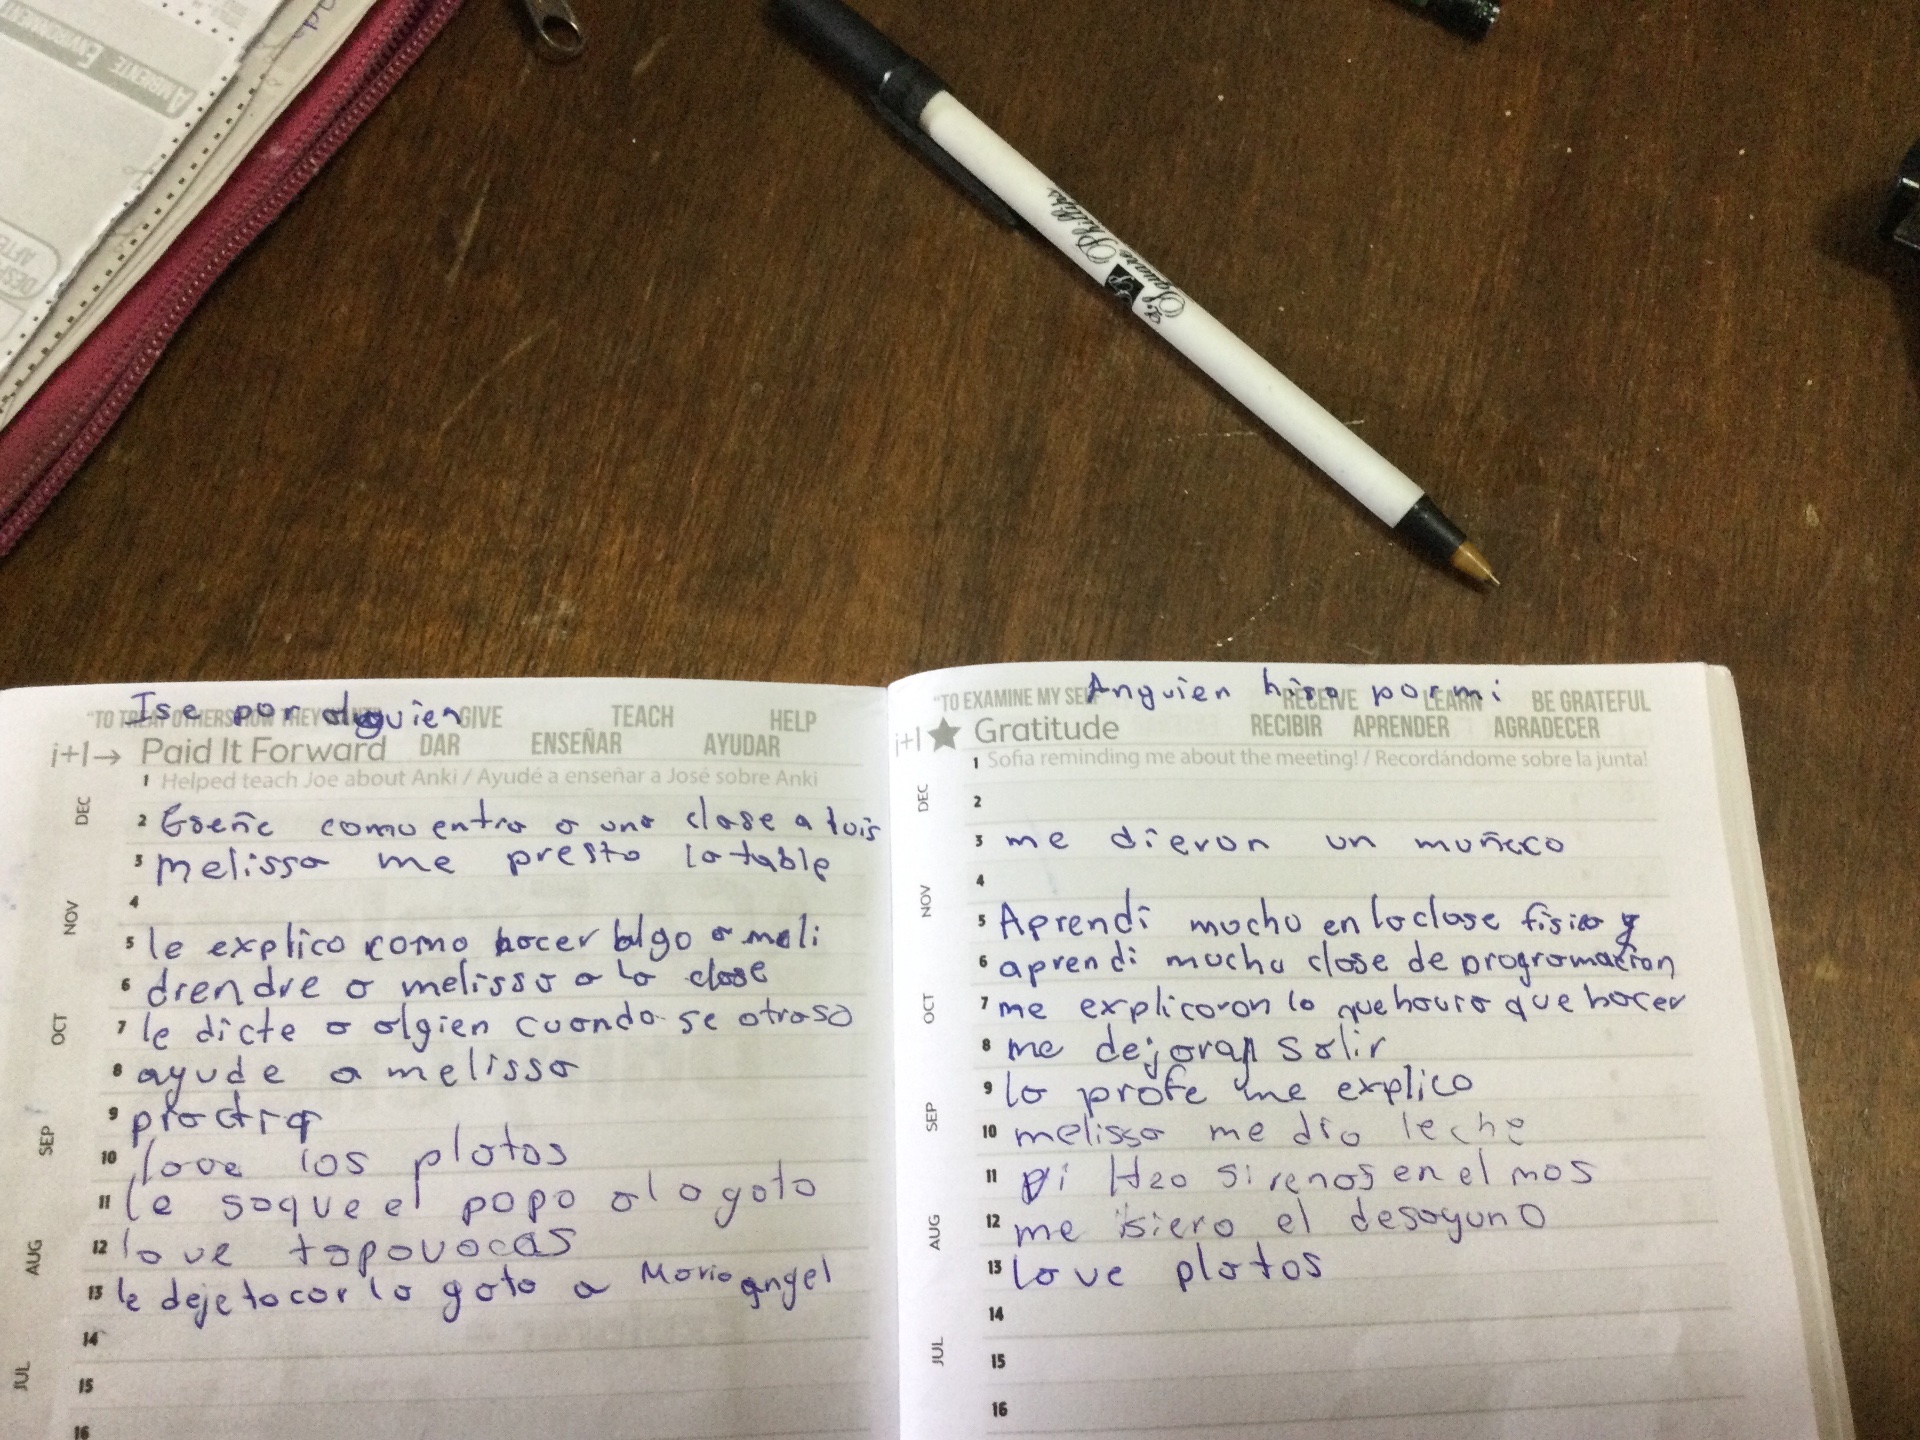 AMBIENTE ENVIRONMENT
DESP
AFTE
Square Phillips
Ise por alguien
"TO TREAT OTHERS HOW THEY
GIVE TEACH HELP
i+1→ Paid It Forward DAR ENSEÑAR AYUDAR
1 Helped teach Joe about Anki / Ayudé a enseñar a José sobre Anki
DEC
2 Eseñe como entra a una clase a luis
3 melissa me presto la table
4
NOV
5 le explico como hacer algo a meli
6 drendre a melissa a la clase
OCT
7 le dicte a algien cuando se atraso
8 ayude a melissa
9
SEP
10 lave los platos
11 le saque el popo a la gata
AUG
12 lave tapavocas
13 le deje tocar la gata a Maria angel
14
JUL
15
16
Anguien hiso por mi
"TO EXAMINE MY SEL
RECEIVE LEARN BE GRATEFUL
i+1★ Gratitude RECIBIR APRENDER AGRADECER
1 Sofia reminding me about the meeting! / Recordándome sobre la junta!
DEC
2
3 me dieron un muñeco
4
NOV
5 Aprendi mucho en la clase fisica y
6 aprendi mucho clase de programacion
OCT
7 me explicaron lo que hauia que hacer
8 me dejaran salir
9 la profe me explico
SEP
10 melissa me dio leche
11 Vi H2o sirenas en el mas
AUG
12 me isiero el desayuno
13 lave platos
14
JUL
15
16